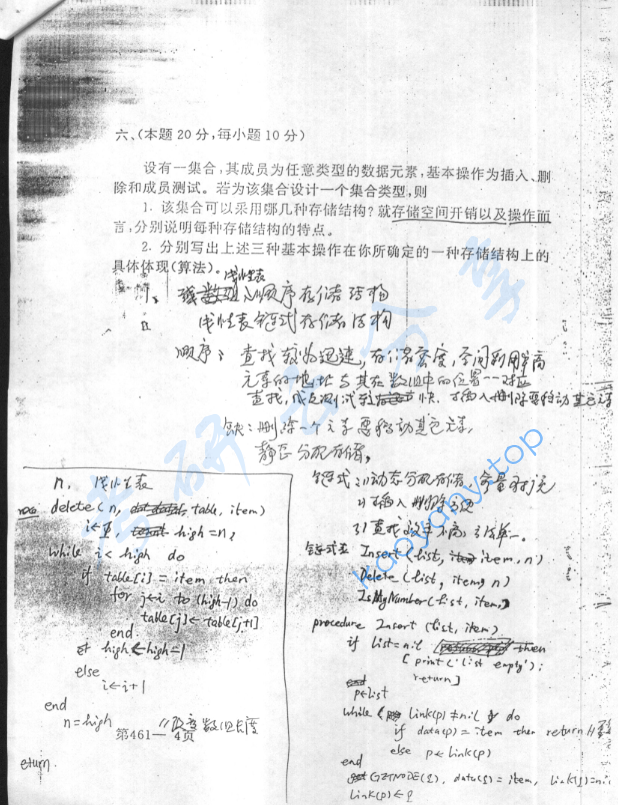 六、(本题20分,每小题10分)
设有一集合,其成员为任意类型的数据元素,基本操作为插入、删
除和成员测试。若为该集合设计一个集合类型,则
1. 该集合可以采用哪几种存储结构?就存储空间开销以及操作而
言,分别说明每种存储结构的特点。
2. 分别写出上述三种基本操作在你所确定的一种存储结构上的
具体体现(算法)。
线性表
1、 顺序存储结构
线性表链式存储结构
顺序: 查找较为迅速, 存储密度, 空间利用率高
元素的地址与其在数组中的位置一一对应
查找, 成员测试 快、 插入删除要移动其它元素
缺: 删除一个元素要移动其它元素,
静态分配存储,
链式: 1) 动态分配存储, 容量扩充
2) 插入删除方便
3) 查找效率不高,
n, 线性表
delete(n, table, item)
i←1 high=n;
while i < high do
if table[i] = item then
for j←i to (high-1) do
table[j]←table[j+1]
end
high←high-1
else
i←i+1
end
n=high //改变数组长度
eturn
第461— 4页
链式表 Insert(list, item, n)
Delete(list, item, n)
IsMyNumber(list, item,)
procedure Insert (list, item)
if list=nil then
[print('list empty');
return]
p←list
while link(p)≠nil do
if data(p)=item then return //
else p←link(p)
end
GETNODE(q), data(q)=item, link(q)=nil
link(p)←q
考研云分享
kaoyany.top